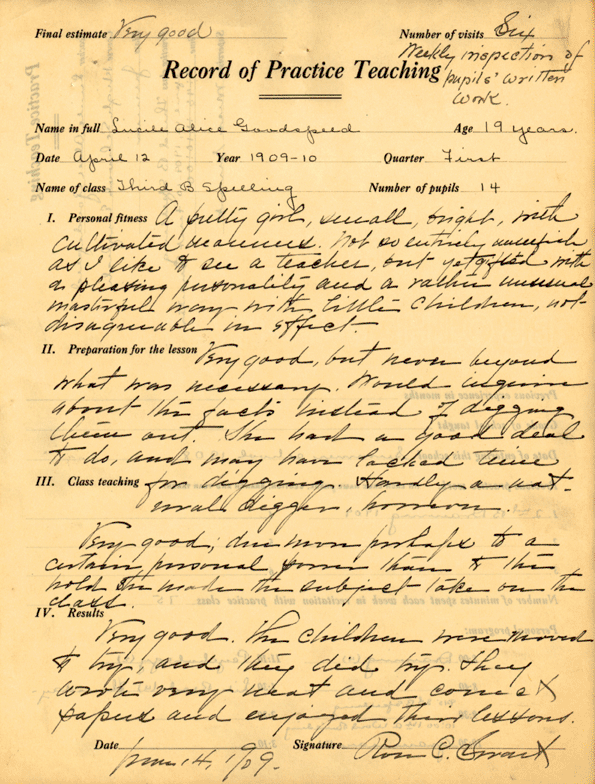 Final estimate Very good Number of visits Six
Weekly inspection of
Record of Practice Teaching pupils' written
work.
Name in full Lucile Alice Goodspeed Age 19 years.
Date April 12 Year 1909-10 Quarter First
Name of class Third B Spelling Number of pupils 14
I. Personal fitness A pretty girl, small, bright, with
cultivated manners. Not so entirely unselfish
as I like to see a teacher, but yet gifted with
a pleasing personality and a rather unusual
masterful way with little children, not
disagreeable in effect.
II. Preparation for the lesson Very good, but never beyond
what was necessary. Would inquire
about the facts instead of digging
them out. She had a good deal
to do, and may have lacked time
III. Class teaching for digging. Hardly a nat-
ural digger, however.
Very good; due more perhaps to a
certain personal power than to the
hold she made the subject take on the
class.
IV. Results
Very good. The children were moved
to try, and they did try. They
wrote very neat and correct
papers and enjoyed their lessons.
Date June 14, 1909. Signature Rose C.
Practice Teaching
Previous experience in months
Number of minutes spent each week in recitation with practice class
Personal program: